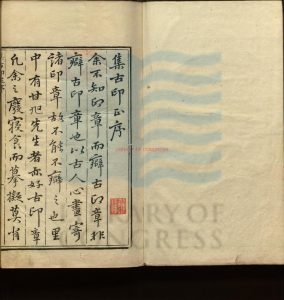 集古印正序
余不知印章而癖古印章非
癖古印章也以古人心畫寄
諸印章故不能不癖之也里
中有甘旭先生者亦好古印章
凡余之廢寢食而摹擬莫肖
LIBRARY OF CONGRESS
LIBRARY OF CONGRESS